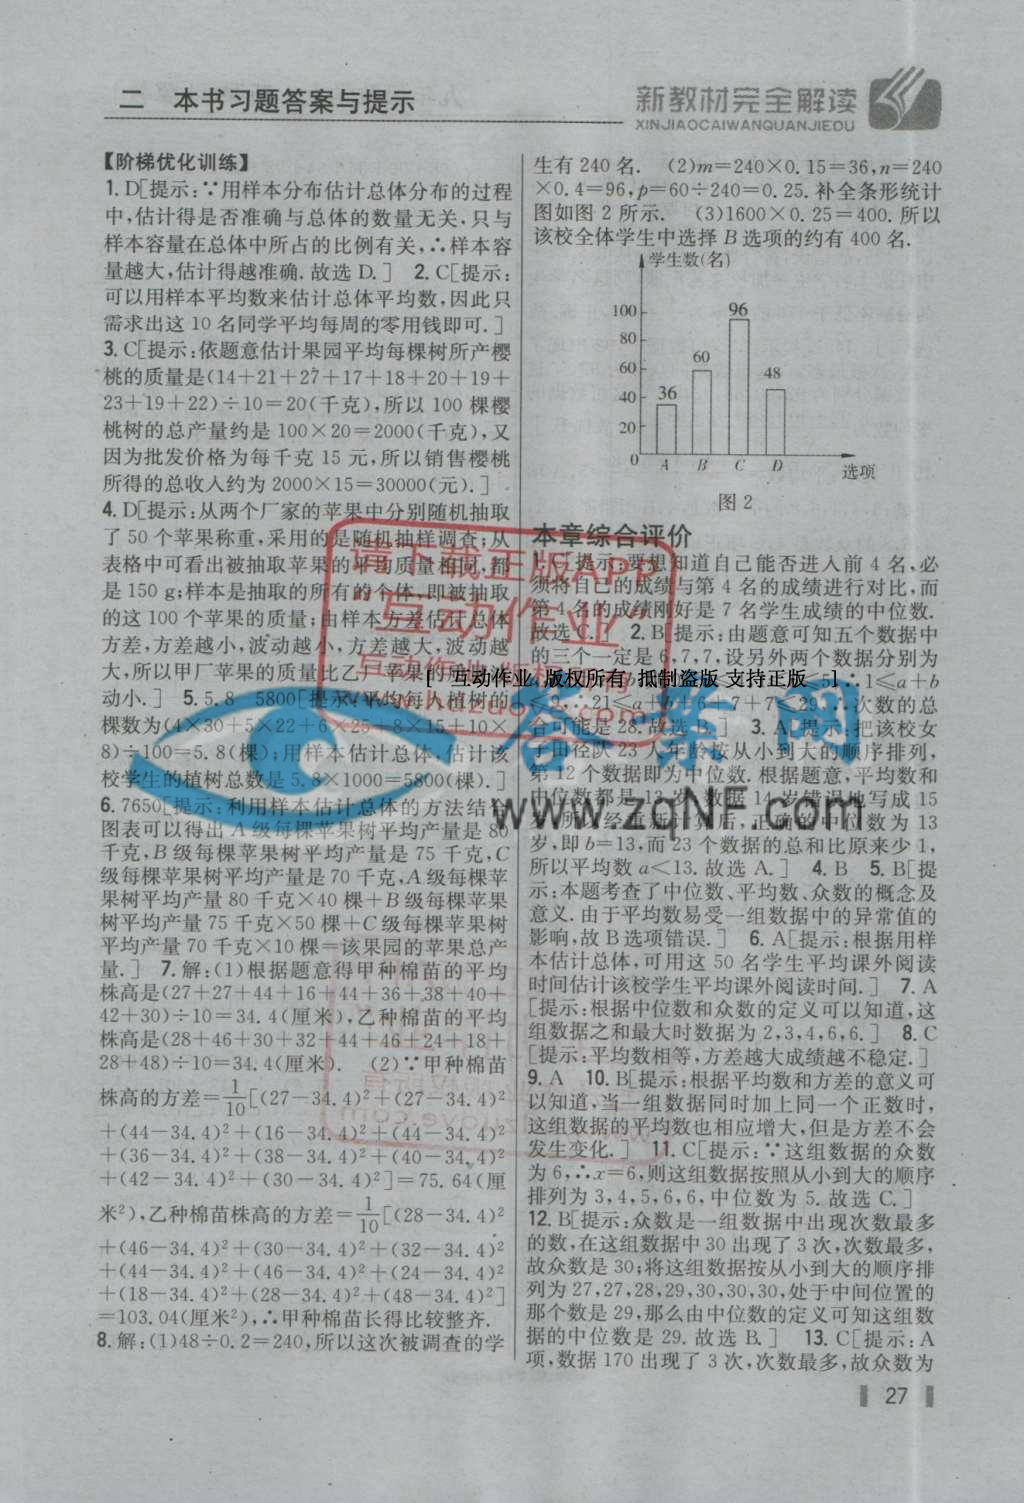 二 本书习题答案与提示
新教材完全解读
XINJIAOCAIWANQUANJIEDU
【阶梯优化训练】
1. D[提示:∵用样本分布估计总体分布的过程
中,估计得是否准确与总体的数量无关.只与
样本容量在总体中所占的比例有关,∴样本容
量越大,估计得越准确.故选 D.] 2. C[提示:
可以用样本平均数来估计总体平均数,因此只
需求出这 10 名同学平均每周的零用钱即可.]
3. C[提示:依题意估计果园平均每棵树所产樱
桃的质量是(14+21+27+17+18+20+19+
23+19+22)÷10=20(千克),所以 100 棵樱
桃树的总产量约是 100×20=2000(千克),又
因为批发价格为每千克 15 元,所以销售樱桃
所得的总收入约为 2000×15=30000(元).]
4. D[提示:从两个厂家的苹果中分别随机抽取
了 50 个苹果称重,采用的是随机抽样调查;从
表格中可看出被抽取苹果的平均质量相同,都
是 150 g;样本是抽取的所有的个体,即被抽取
的这 100 个苹果的质量;由样本方差估计总体
方差,方差越小,波动越小,方差越大,波动越
大,所以甲厂苹果的质量比乙厂苹果的质量波
动小.] 5. 5.8 5800[提示:平均每人植树的
棵数为(4×30+5×22+6×25+8×15+10×
8)÷100=5.8(棵);用样本估计总体,估计该
校学生的植树总数是 5.8×1000=5800(棵).]
6. 7650[提示:利用样本估计总体的方法结合
图表可以得出 A 级每棵苹果树平均产量是 80
千克,B 级每棵苹果树平均产量是 75 千克,C
级每棵苹果树平均产量是 70 千克,A 级每棵苹
果树平均产量 80 千克×40 棵+B 级每棵苹果
树平均产量 75 千克×50 棵+C 级每棵苹果树
平均产量 70 千克×10 棵=该果园的苹果总产
量.] 7. 解:(1)根据题意得甲种棉苗的平均
株高是(27+27+44+16+44+36+38+40+
42+30)÷10=34.4(厘米),乙种棉苗的平均
株高是(28+46+30+32+44+46+24+18+
28+48)÷10=34.4(厘米). (2)∵甲种棉苗
株高的方差=1/10[(27-34.4)²+(27-34.4)²
+(44-34.4)²+(16-34.4)²+(44-34.4)²
+(36-34.4)²+(38-34.4)²+(40-34.4)²
+(42-34.4)²+(30-34.4)²]=75.64(厘
米²),乙种棉苗株高的方差=1/10[(28-34.4)²
+(46-34.4)²+(30-34.4)²+(32-34.4)²
+(44-34.4)²+(46-34.4)²+(24-34.4)²
+(18-34.4)²+(28-34.4)²+(48-34.4)²]
=103.04(厘米²),∴甲种棉苗长得比较整齐.
8. 解:(1)48÷0.2=240,所以这次被调查的学
生有 240 名. (2)m=240×0.15=36,n=240
×0.4=96,p=60÷240=0.25. 补全条形统计
图如图 2 所示. (3)1600×0.25=400. 所以
该校全体学生中选择 B 选项的约有 400 名.
学生数(名)
100
60
40
20
0
36
60
96
48
A B C D
选项
图 2
本章综合评价
1. C[提示:要想知道自己能否进入前 4 名,必
须将自己的成绩与第 4 名的成绩进行对比,而
第 4 名的成绩刚好是 7 名学生成绩的中位数.
故选 C.] 2. B[提示:由题意可知五个数据中
的三个一定是 6,7,7,设另外两个数据分别为
5]∴1≤a+b
≤29∴次数的总
合可能是 28.故选 3. A[提示:把该校女
子田径队 23 人年龄按从小到大的顺序排列,
第 12 个数据即为中位数. 根据题意,平均数和
中位数都是 13 岁,数据 14 岁错误地写成 15
所以经重新计算后,正确的中位数为 13
岁,即 b=13,而 23 个数据的总和比原来少 1,
所以平均数 a<13. 故选 A.] 4. B 5. B[提
示:本题考查了中位数、平均数、众数的概念及
意义. 由于平均数易受一组数据中的异常值的
影响,故 B 选项错误.] 6. A[提示:根据用样
本估计总体,可用这 50 名学生平均课外阅读
时间估计该校学生平均课外阅读时间.] 7. A
[提示:根据中位数和众数的定义可以知道,这
组数据之和最大时数据为 2,3,4,6,6.] 8. C
[提示:平均数相等,方差越大成绩越不稳定.]
9. A 10. B[提示:根据平均数和方差的意义可
以知道,当一组数据同时加上同一个正数时,
这组数据的平均数也相应增大,但是方差不会
发生变化.] 11. C[提示:∵这组数据的众数
为 6,∴x=6,则这组数据按照从小到大的顺序
排列为 3,4,5,6,6,中位数为 5. 故选 C.]
12. B[提示:众数是一组数据中出现次数最多
的数,在这组数据中 30 出现了 3 次,次数最多,
故众数是 30;将这组数据按从小到大的顺序排
列为 27,27,28,29,30,30,30,处于中间位置的
那个数是 29,那么由中位数的定义可知这组数
据的中位数是 29. 故选 B.] 13. C[提示:A
项,数据 170 出现了 3 次,次数最多,故众数为
27
请下载正版APP
“互动作业”
互动作业 版权所有 抵制盗版 支持正版
答案网
www.zqNF.com